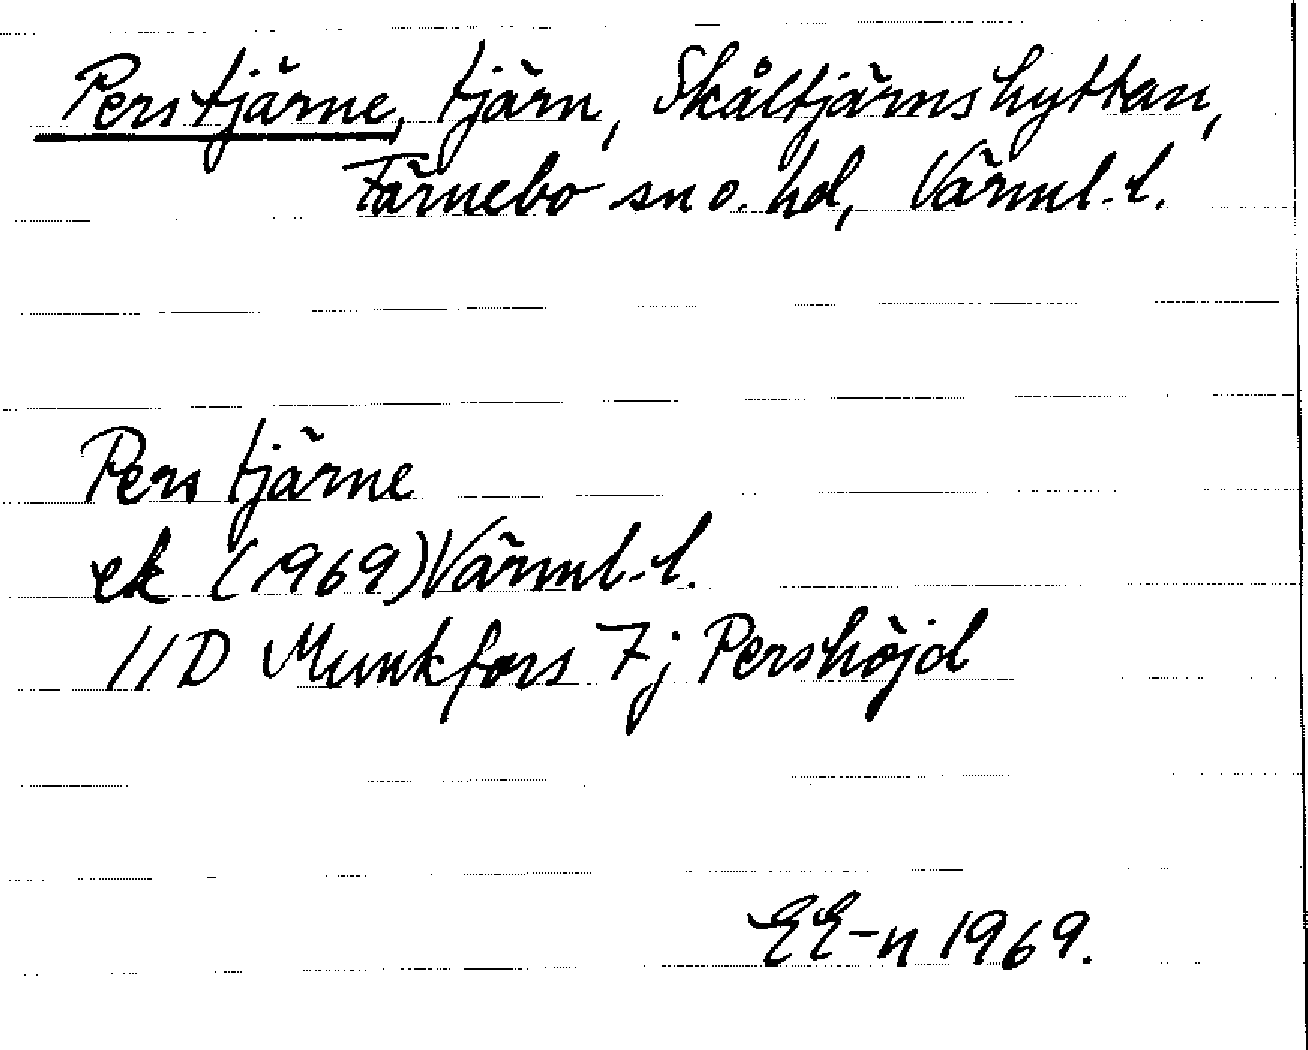 Perstjärne, tjärn, Skåltjärnshyttan,
Färnebo sn o. hd, Värml. l.
Pers tjärne
ek (1969) Värml. l.
11D Munkfors 7j Pershöjd
EE-n 1969.